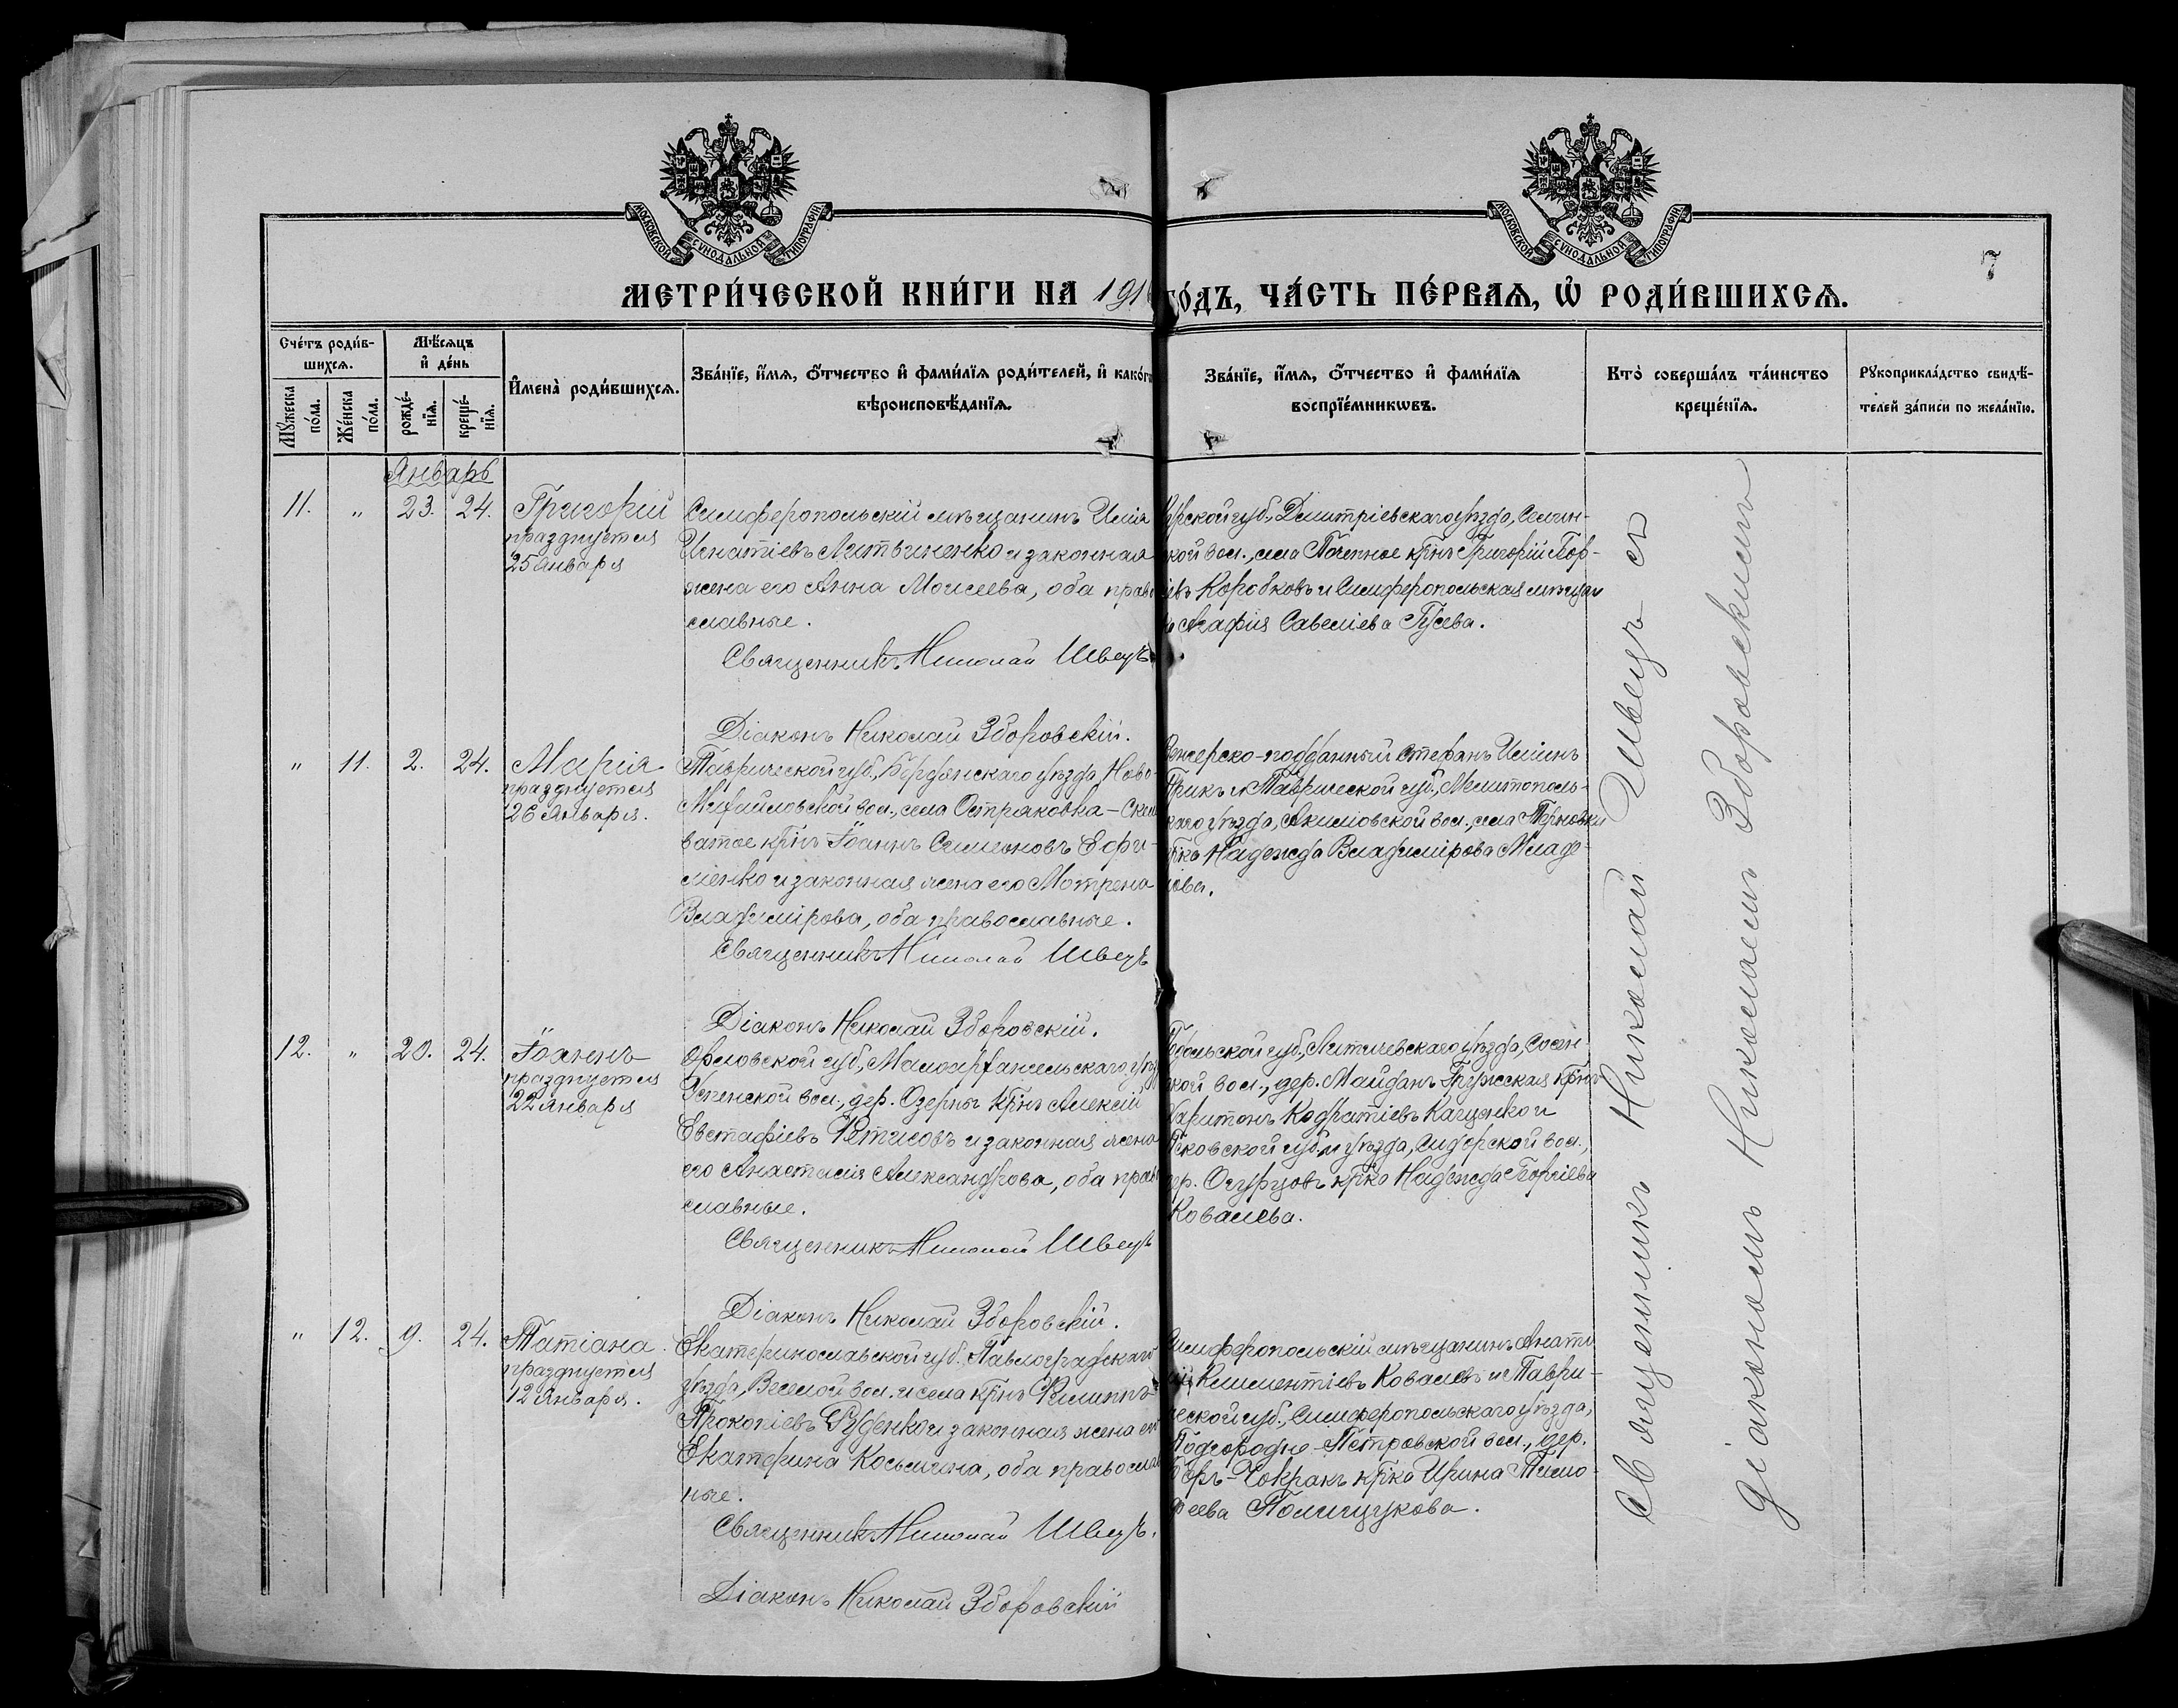 МОСКОВСКОЙ СѴНОДАЛЬНОЙ ТИПОГРАФІИ.
МОСКОВСКОЙ СѴНОДАЛЬНОЙ ТИПОГРАФІИ.
7
МЕТРИ́ЧЕСКОЙ КНИ́ГИ НА 191
ГО́ДЪ, ЧА́СТЬ ПЕ́РВАѦ, Ѡ҆ РОДИ́ВШИХСѦ.
Сче́тъ роди́в-
шихсѧ.
Мꙋ́жеска
по́ла.
Же́нска
по́ла.
Мѣ́сѧцъ
и҆ де́нь
рожде́-
нїѧ.
креще́-
нїѧ.
И҆мена̀ роди́вшихсѧ.
Зва́нїе, и҆́мѧ, ѻ҆́тчество и҆ фами́лїѧ роди́телей, и҆ како́гѡ
вѣроисповѣ́данїѧ.
Зва́нїе, и҆́мѧ, ѻ҆́тчество и҆ фами́лїѧ
воспрїе́мникѡвъ.
Кто̀ соверша́лъ та́инство
креще́нїѧ.
Рꙋкоприкла́дство свидѣ́-
телей за́писи по жела́нїю.
Январь
11. " 23. 24. Григорій
празднуется
25 Января
Симферопольскій мѣщанинъ Илія
Игнатіевъ Литвиненко и законная
жена его Анна Моисеева, оба право
славные.
Священникъ Николай Швецъ
Діаконъ Николай Зборовскій.
Курской губ., Дмитріевскаго уѣзда, Селин-
кой вол., села Почепное крнъ Григорій
Коробковъ и Симферопольская мѣщан
Агафія Савеліева Гусева.
" 11. 2. 24. Марія
празднуется
26 Января.
Таврической губ., Бердянскаго уѣзда, Ново-
Михайловской вол., села Остраковка-
ватое крнъ Іоаннъ Симеоновъ Ефи-
менко и законная жена его Мотрена
Владимірова, оба православные.
Священникъ Николай Швецъ
Діаконъ Николай Зборовскій.
Венгерско-подданный Стефанъ
и Таврической губ., Мелитополь-
каго уѣзда, Акимовской вол., села Терновки
Надежда Владимірова Младе-
нова.
12. " 20. 24. Іоаннъ
празднуется
22 Января
Орловской губ., Малоархангельскаго уѣз
Успенской вол., дер. Озерны крнъ Алексій
Евстафіевъ Фетисовъ и законная жена
его Анастасія Александрова, оба право
славные.
Священникъ Николай Швецъ
Діаконъ Николай Зборовскій.
Подольской губ., Литичевскаго уѣзда,
кой вол., дер. Майданъ крнъ
Харитонъ Кодратіевъ Кащенко и
Псковской губ. и уѣзда, Сидорской вол.,
дер. Огурцовъ крка Надежда
Ковалева.
" 12. 9. 24. Татіана
празднуется
12 Января.
Екатеринославской губ., Павлоградскаго
уѣзда, Веселой вол. и села крнъ Филиппъ
Прокопіевъ Руденко и законная жена его
Екатерина Косьмина, оба православ
ные.
Священникъ Николай Швецъ.
Діаконъ Николай Зборовскій
Симферопольскій мѣщанинъ
Климентіевъ Ковалевъ и Таври-
ческой губ., Симферопольскаго уѣзда,
Подгородне-Петровской вол., дер.
Чокракъ крка Ирина Тимо-
феева Полищукова.
Священникъ Николай Швецъ съ
діакономъ Николаемъ Зборовскимъ